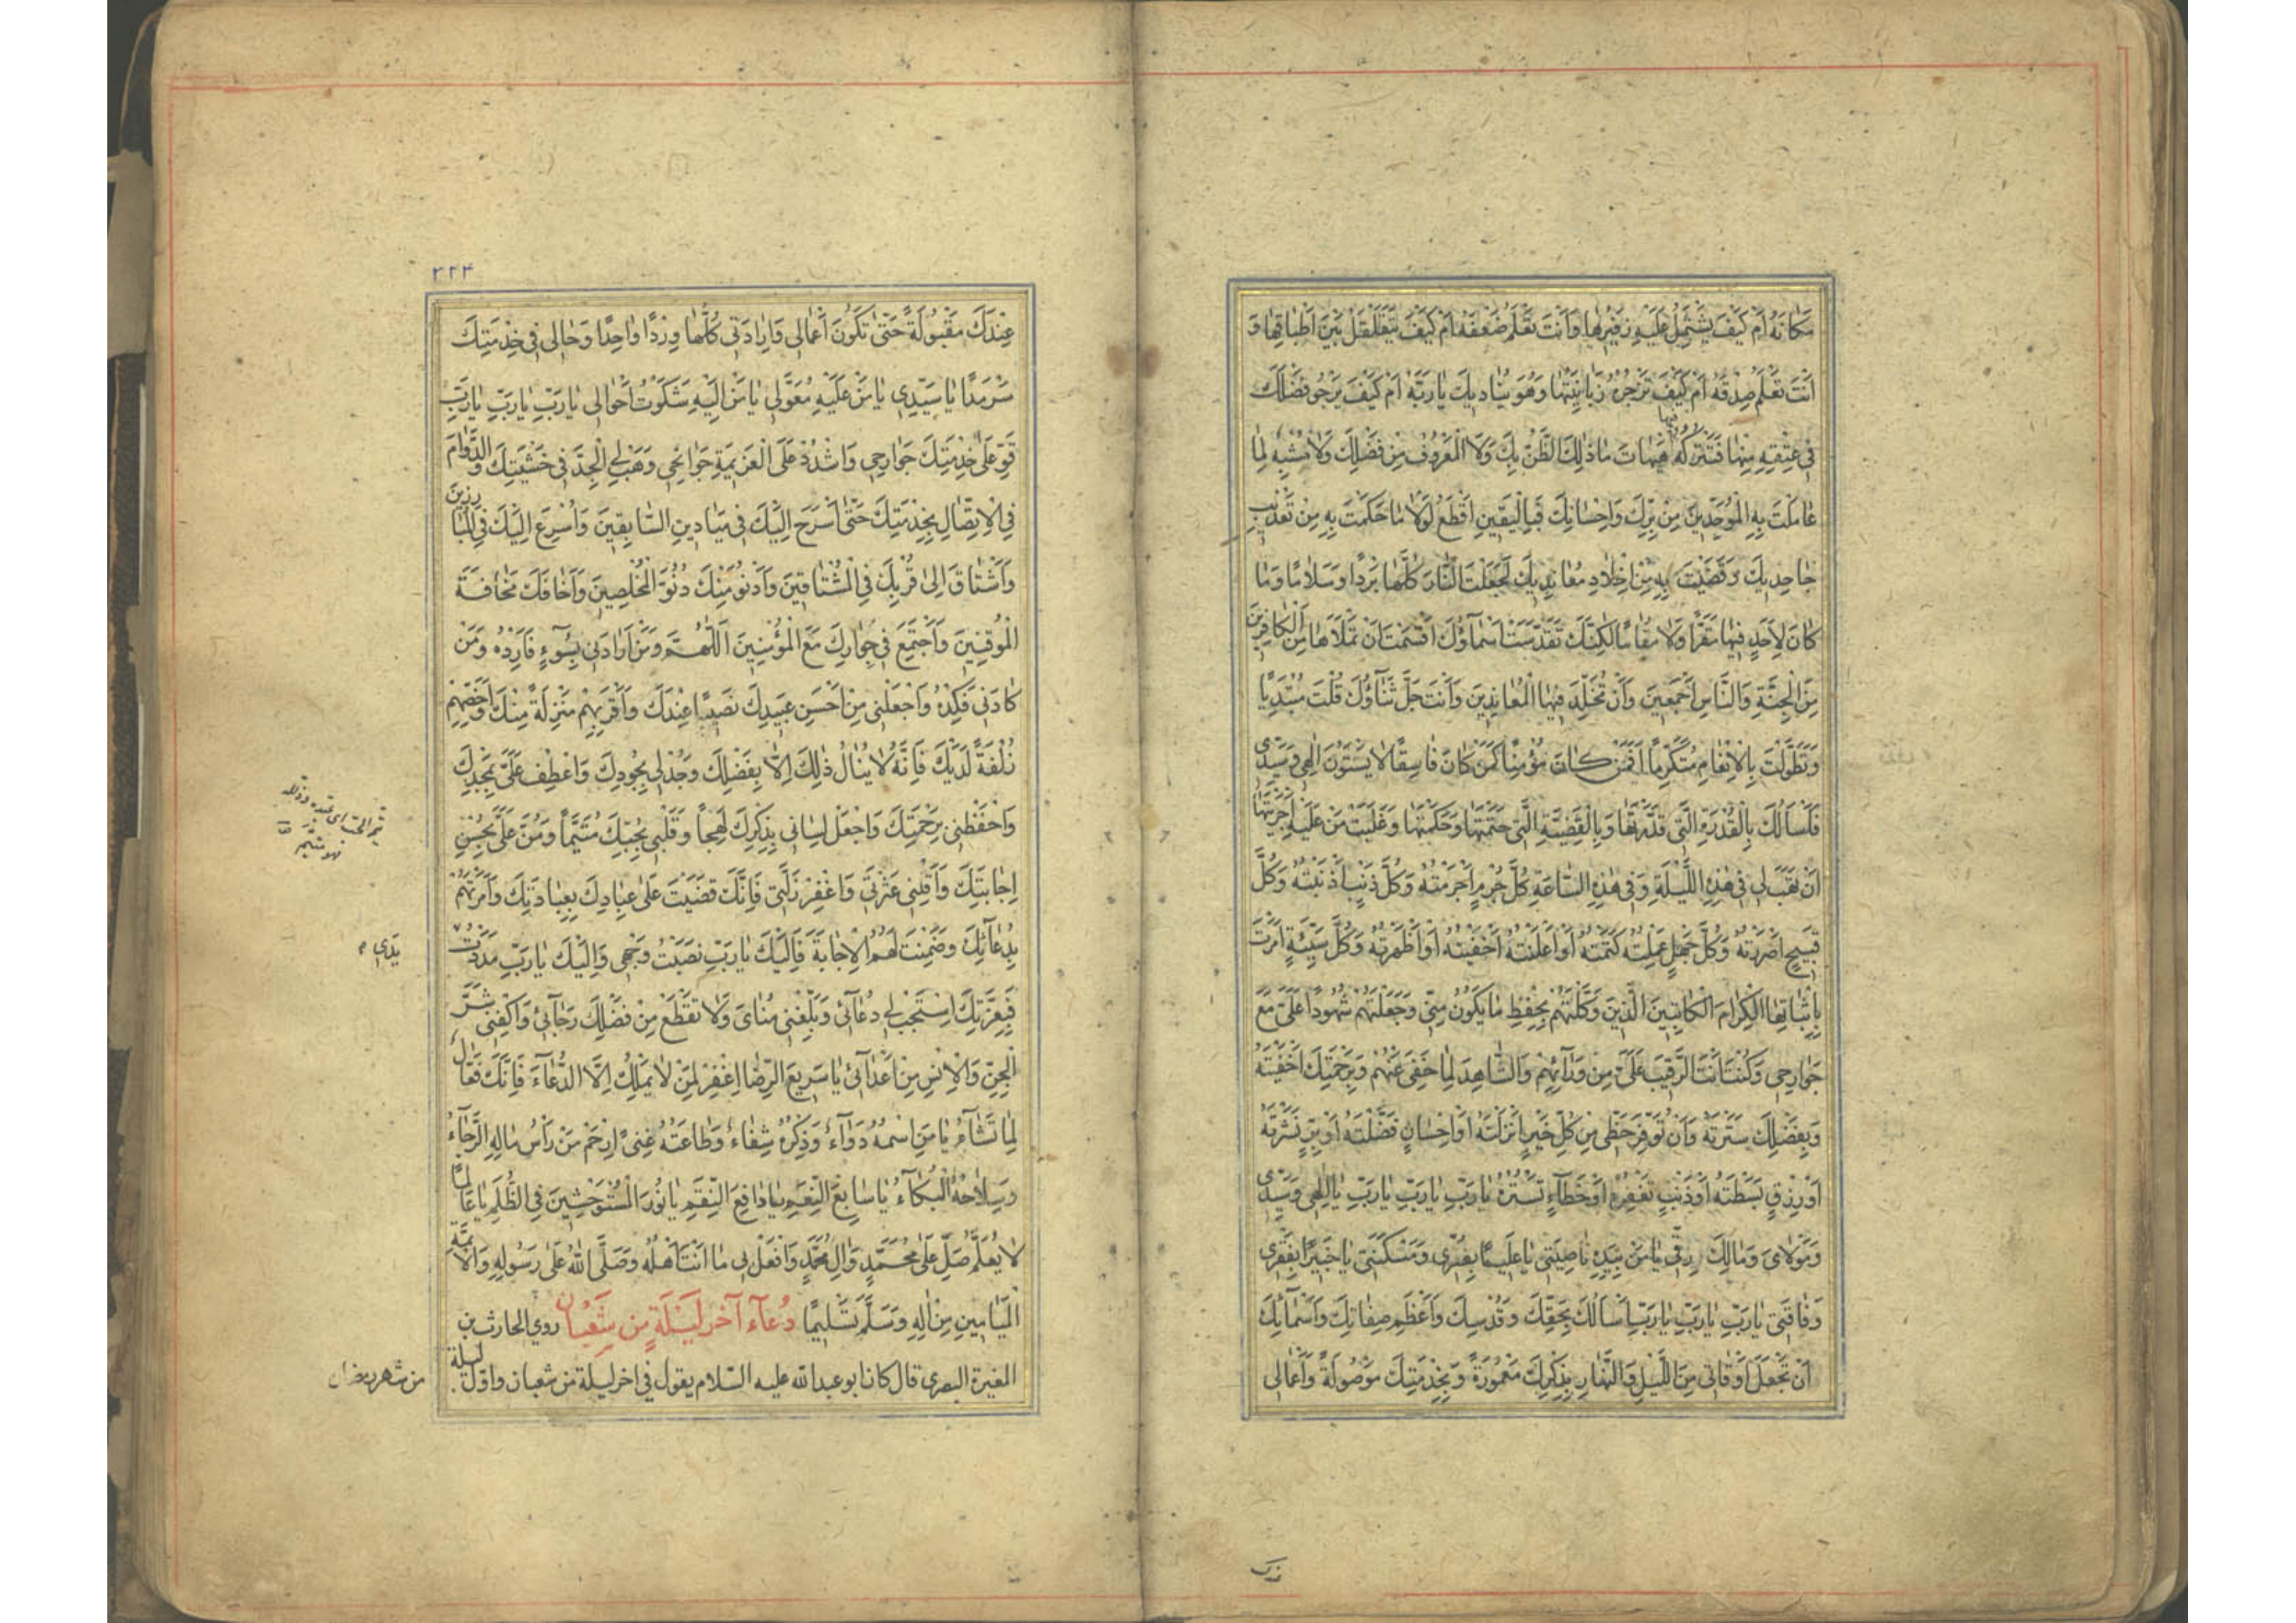 مَكَانَهُ اَمْ كَيْفَ يَشْتَمِلُ عَلَيْهِ زَفيرُها وَاَنْتَ تَعْلَمُ ضَعْفَهُ اَمْ كَيْفَ يَتَقَلْقَلُ بَيْنَ اَطْباقِها وَ
اَنْتَ تَعْلَمُ صِدْقَهُ اَمْ كَيْفَ تَزْجُرُهُ زَبانِيَتُها وَهُوَ يُناديكَ يا رَبَّهُ اَمْ كَيْفَ يَرْجُو فَضْلَكَ
في عِتْقِهِ مِنْها فَتَتْرُكُهُ فيها هَيْهاتَ ما ذلِكَ الظَّنُّ بِكَ وَلاَ الْمَعْرُوفُ مِنْ فَضْلِكَ وَلا مُشْبِهٌ لِما
عامَلْتَ بِهِ الْمُوَحِّدينَ مِنْ بِرِّكَ وَاِحْسانِكَ فَبِالْيَقينِ اَقْطَعُ لَوْلا ما حَكَمْتَ بِهِ مِنْ تَعْذيبِ
جاحِديكَ وَقَضَيْتَ بِهِ مِنْ اِخْلادِ مُعانِديكَ لَجَعَلْتَ النّارَ كُلَّها بَرْدًا وَسَلامًا وَما
كانَ لِاَحَدٍ فيها مَقَرًّا وَلا مُقامًا لكِنَّكَ تَقَدَّسَتْ اَسْمآؤُكَ اَقْسَمْتَ اَنْ تَمْلَاَها مِنَ الْكافِرينَ
مِنَ الْجِنَّةِ وَالنَّاسِ اَجْمَعينَ وَاَنْ تُخَلِّدَ فيهَا الْمُعانِدينَ وَاَنْتَ جَلَّ ثَنآؤُكَ قُلْتَ مُبْتَدِيًا
وَتَطَوَّلْتَ بِالْاِنْعامِ مُتَكَرِّمًا اَفَمَنْ كانَ مُؤْمِنًا كَمَنْ كانَ فاسِقًا لا يَسْتَوُونَ اِلهي وَسَيِّدي
فَاَسْاَلُكَ بِالْقُدْرَةِ الَّتي قَدَّرْتَها وَبِالْقَضِيَّةِ الَّتي حَتَمْتَها وَحَكَمْتَها وَغَلَبْتَ مَنْ عَلَيْهِ اَجْرَيْتَها
اَنْ تَهَبَ لي في هذِهِ اللَّيْلَةِ وَفي هذِهِ السّاعَةِ كُلَّ جُرْمٍ اَجْرَمْتُهُ وَكُلَّ ذَنْبٍ اَذْنَبْتُهُ وَكُلَّ
قَبيحٍ اَسْرَرْتُهُ وَكُلَّ جَهْلٍ عَمِلْتُهُ كَتَمْتُهُ اَوْ اَعْلَنْتُهُ اَخْفَيْتُهُ اَوْ اَظْهَرْتُهُ وَكُلَّ سَيِّئَةٍ اَمَرْتَ
بِاِثْباتِهَا الْكِرامَ الْكاتِبينَ الَّذينَ وَكَّلْتَهُمْ بِحِفْظِ ما يَكُونُ مِنّي وَجَعَلْتَهُمْ شُهُودًا عَلَيَّ مَعَ
جَوارِحي وَكُنْتَ اَنْتَ الرَّقيبَ عَلَيَّ مِنْ وَرآئِهِمْ وَالشّاهِدَ لِما خَفِيَ عَنْهُمْ وَبِرَحْمَتِكَ اَخْفَيْتَهُ
وَبِفَضْلِكَ سَتَرْتَهُ وَاَنْ تُوَفِّرَ حَظّي مِنْ كُلِّ خَيْرٍ اَنْزَلْتَهُ اَوْ اِحْسانٍ فَضَّلْتَهُ اَوْ بِرٍّ نَشَرْتَهُ
اَوْ رِزْقٍ بَسَطْتَهُ اَوْ ذَنْبٍ تَغْفِرُهُ اَوْ خَطَآءٍ تَسْتُرُهُ يا رَبِّ يا رَبِّ يا رَبِّ يا اِلهي وَسَيِّدي
وَمَوْلايَ وَمالِكَ رِقّي يا مَنْ بِيَدِهِ ناصِيَتي يا عَليمًا بِضُرّي وَمَسْكَنَتي يا خَبيرًا بِفَقْري
وَفاقَتي يا رَبِّ يا رَبِّ يا رَبِّ اَسْاَلُكَ بِحَقِّكَ وَقُدْسِكَ وَاَعْظَمِ صِفاتِكَ وَاَسْمآئِكَ
اَنْ تَجْعَلَ اَوْقاتي مِنَ اللَّيْلِ وَالنَّهارِ بِذِكْرِكَ مَعْمُورَةً وَبِخِدْمَتِكَ مَوْصُولَةً وَاَعْمالي
٢٢٤
عِنْدَكَ مَقْبُولَةً حَتّى تَكُونَ اَعْمالي وَاِرادَتي كُلُّها وِرْدًا واحِدًا وَحالي في خِدْمَتِكَ
سَرْمَدًا يا سَيِّدي يا مَنْ عَلَيْهِ مُعَوَّلي يا مَنْ اِلَيْهِ شَكَوْتُ اَحْوالي يا رَبِّ يا رَبِّ يا رَبِّ
قَوِّ عَلى خِدْمَتِكَ جَوارِحي وَاشْدُدْ عَلَى الْعَزيمَةِ جَوانِحي وَهَبْ لِيَ الْجِدَّ في خَشْيَتِكَ وَالدَّوامَ
فِي الْاِتِّصالِ بِخِدْمَتِكَ حَتّى اَسْرَحَ اِلَيْكَ في مَيادينِ السّابِقينَ وَاُسْرِعَ اِلَيْكَ فِي الْمُبارِزينَ
وَاَشْتاقَ اِلى قُرْبِكَ فِي الْمُشْتاقينَ وَاَدْنُوَ مِنْكَ دُنُوَّ الْمُخْلِصينَ وَاَخافَكَ مَخافَةَ
الْمُوقِنينَ وَاَجْتَمِعَ في جِوارِكَ مَعَ الْمُؤْمِنينَ اَللّهُمَّ وَمَنْ اَرادَني بِسُوءٍ فَاَرِدْهُ وَمَنْ
كادَني فَكِدْهُ وَاجْعَلْني مِنْ اَحْسَنِ عَبيدِكَ نَصيبًا عِنْدَكَ وَاَقْرَبِهِمْ مَنْزِلَةً مِنْكَ وَاَخَصِّهِمْ
زُلْفَةً لَدَيْكَ فَاِنَّهُ لا يُنالُ ذلِكَ اِلاّ بِفَضْلِكَ وَجُدْ لي بِجُودِكَ وَاعْطِفْ عَلَيَّ بِمَجْدِكَ
وَاحْفَظْني بِرَحْمَتِكَ وَاجْعَلْ لِساني بِذِكْرِكَ لَهِجاً وَقَلْبي بِحُبِّكَ مُتَيَّماً وَمُنَّ عَلَيَّ بِحُسْنِ
اِجابَتِكَ وَاَقِلْني عَثْرَتي وَاغْفِرْ زَلَّتي فَاِنَّكَ قَضَيْتَ عَلى عِبادِكَ بِعِبادَتِكَ وَاَمَرْتَهُمْ
بِدُعآئِكَ وَضَمِنْتَ لَهُمُ الْاِجابَةَ فَاِلَيْكَ يا رَبِّ نَصَبْتُ وَجْهي وَاِلَيْكَ يا رَبِّ مَدَدْتُ
يَدي
فَبِعِزَّتِكَ اسْتَجِبْ لي دُعآئي وَبَلِّغْني مُنايَ وَلا تَقْطَعْ مِنْ فَضْلِكَ رَجآئي وَاكْفِني شَرَّ
الْجِنِّ وَالْاِنْسِ مِنْ اَعْدآئي يا سَريعَ الرِّضا اِغْفِرْ لِمَنْ لا يَمْلِكُ اِلَّا الدُّعآءَ فَاِنَّكَ فَعّالٌ
لِما تَشآءُ يا مَنِ اسْمُهُ دَوآءٌ وَذِكْرُهُ شِفاءٌ وَطاعَتُهُ غِنىً اِرْحَمْ مَنْ رَأْسُ مالِهِ الرَّجآءُ
وَسِلاحُهُ الْبُكآءُ يا سابِغَ النِّعَمِ يا دافِعَ النِّقَمِ يا نُورَ الْمُسْتَوْحِشينَ فِي الظُّلَمِ يا عالِمًا
لا يُعَلَّمُ صَلِّ عَلى مُحَمَّدٍ وَالِ مُحَمَّدٍ وَافْعَلْ بي ما اَنْتَ اَهْلُهُ وَصَلَّى اللهُ عَلى رَسُولِهِ وَالْاَئِمَّةِ
الْمَيامينِ مِنْ الِهِ وَسَلَّمَ تَسْليمًا دُعآء آخر لَيْلَةٍ مِن شَعْبان روي الحارث بن
المغيرة البصري قال كان ابو عبد الله عليه السّلام يقول في اخر ليلة من شعبان واوّل ليلة
من شهر رمضان